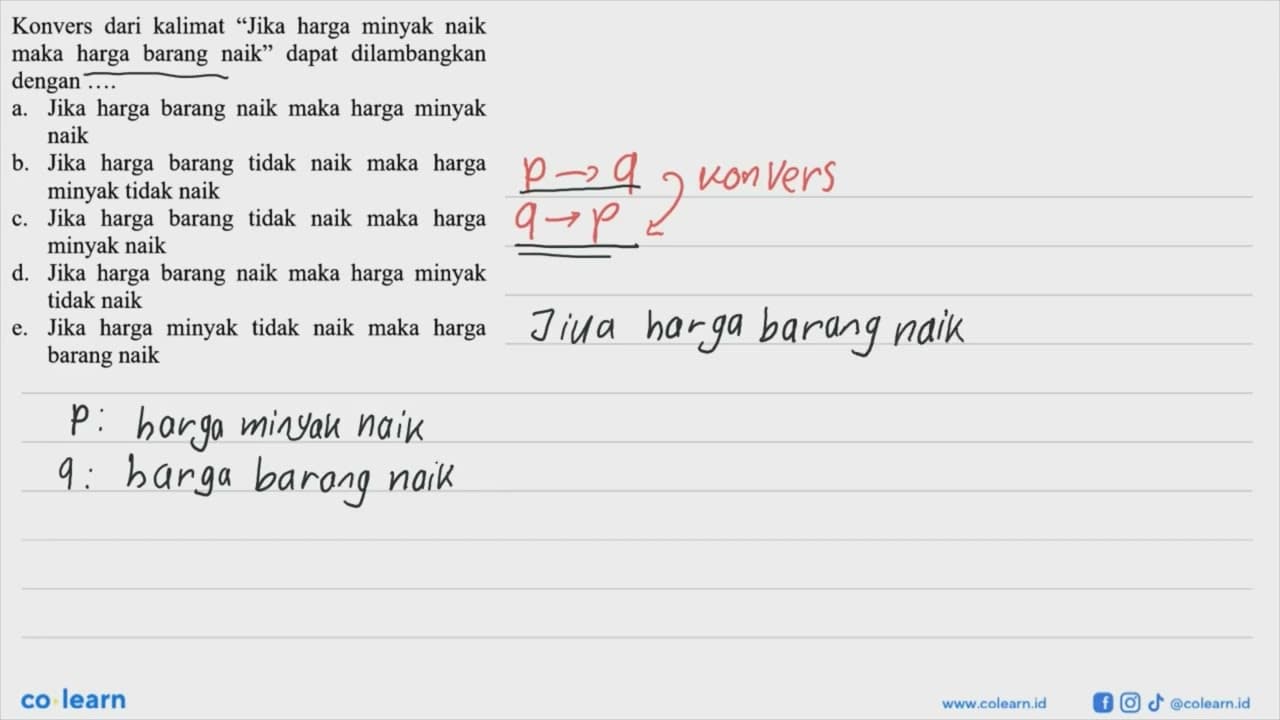 Konvers dari kalimat “Jika harga minyak naik
maka harga barang naik” dapat dilambangkan
dengan ....
a. Jika harga barang naik maka harga minyak
naik
b. Jika harga barang tidak naik maka harga
minyak tidak naik
c. Jika harga barang tidak naik maka harga
minyak naik
d. Jika harga barang naik maka harga minyak
tidak naik
e. Jika harga minyak tidak naik maka harga
barang naik
p → q
konvers
q → p
Jika harga barang naik
p: harga minyak naik
q: harga barang naik
co learn
www.colearn.id
@colearn.id